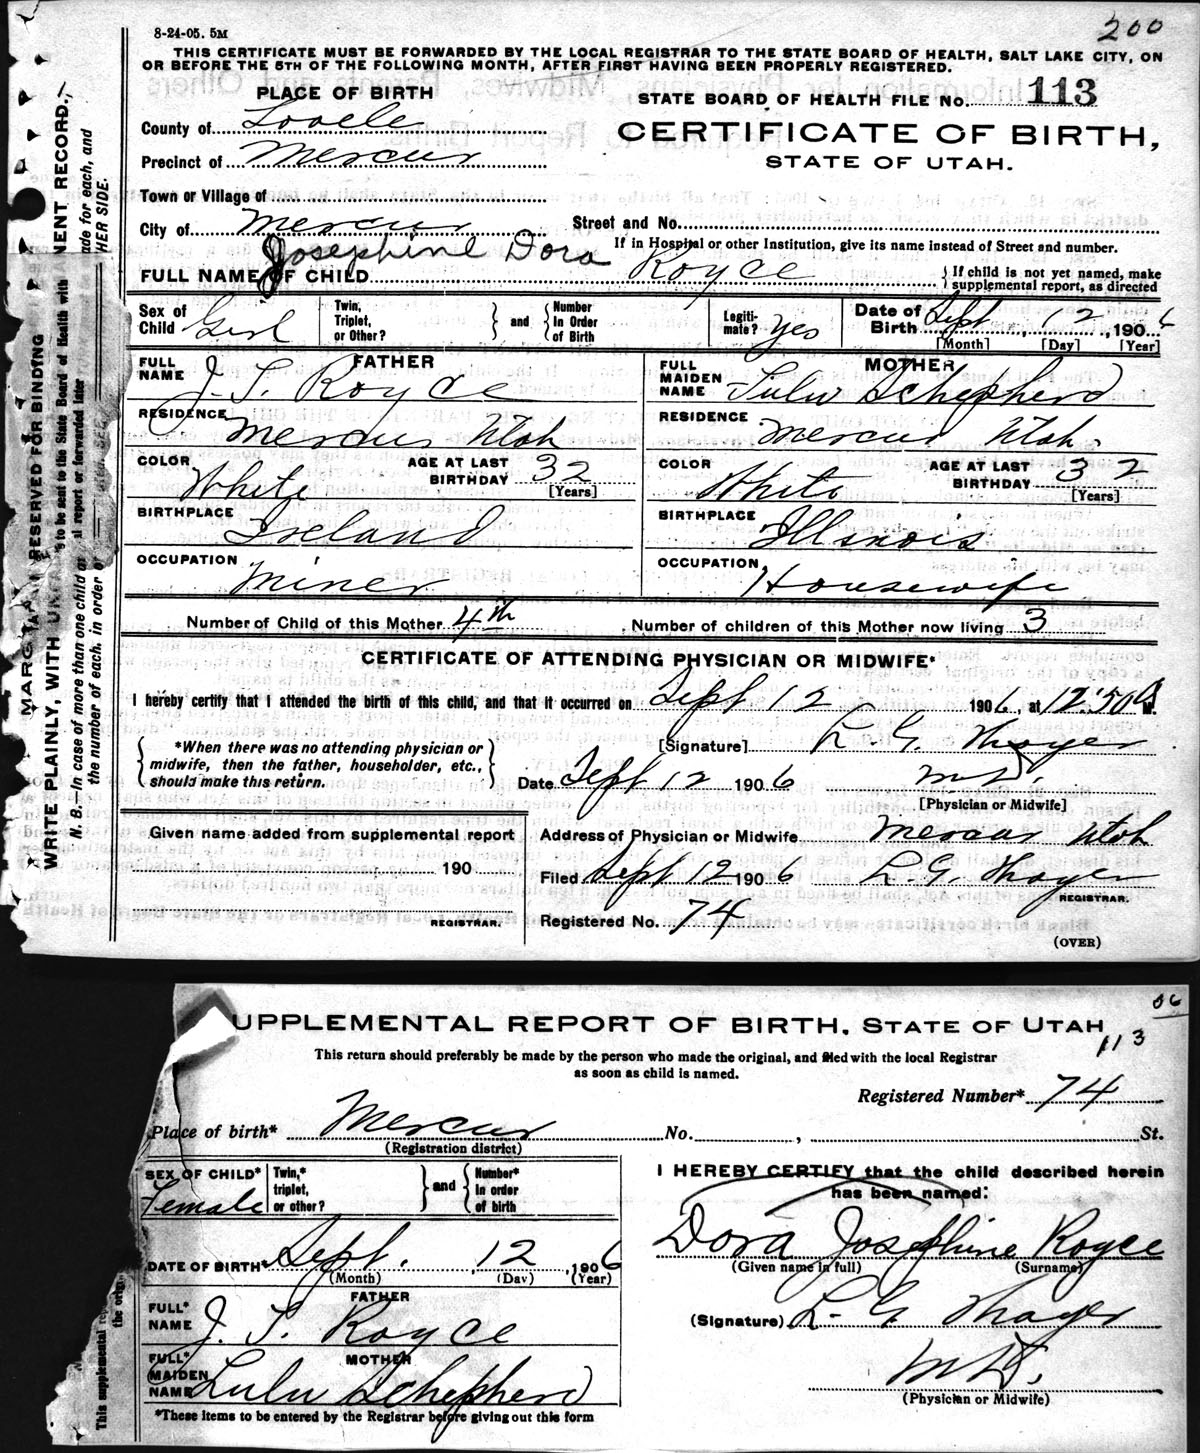 8-24-05. 5M
200
THIS CERTIFICATE MUST BE FORWARDED BY THE LOCAL REGISTRAR TO THE STATE BOARD OF HEALTH, SALT LAKE CITY, ON
OR BEFORE THE 5TH OF THE FOLLOWING MONTH, AFTER FIRST HAVING BEEN PROPERLY REGISTERED.
PLACE OF BIRTH
STATE BOARD OF HEALTH FILE No. 113
County of Tooele
CERTIFICATE OF BIRTH,
Precinct of Mercur
STATE OF UTAH.
Town or Village of
City of Mercur
Street and No.
Josephine Dora
If in Hospital or other Institution, give its name instead of Street and number.
FULL NAME OF CHILD Royce
If child is not yet named, make
supplemental report, as directed
Sex of
Child Girl
Twin,
Triplet,
or Other?
and
Number
In Order
of Birth
Legiti-
mate? Yes
Date of
Birth Sept 12, 1906
[Month] [Day] [Year]
FATHER
FULL
NAME J. T. Royce
MOTHER
FULL
MAIDEN
NAME Lulu Schepherd
RESIDENCE
Mercur Utah
RESIDENCE
Mercur Utah.
COLOR
White
AGE AT LAST
BIRTHDAY 32
[Years]
COLOR
White
AGE AT LAST
BIRTHDAY 32
[Years]
BIRTHPLACE
Ireland
BIRTHPLACE
Illinois
OCCUPATION
Miner
OCCUPATION
Housewife
Number of Child of this Mother 4th
Number of children of this Mother now living 3
CERTIFICATE OF ATTENDING PHYSICIAN OR MIDWIFE*
I hereby certify that I attended the birth of this child, and that it occurred on Sept 12 1906, at 12:50 A M.
*When there was no attending physician or
midwife, then the father, householder, etc.,
should make this return.
[Signature] L. G. Thayer
Date Sept 12 1906 M.D.
[Physician or Midwife]
Given name added from supplemental report
190
REGISTRAR.
Address of Physician or Midwife Mercur Utah
Filed Sept 12 1906 L. G. Thayer
REGISTRAR.
Registered No. 74
(OVER)
MARGIN RESERVED FOR BINDING
WRITE PLAINLY, WITH
NENT RECORD.
N. B.—In case of more than one child a
ade for each, and
the number of each, in order of
HER SIDE.
to be sent to the State Board of Health with
al report or forwarded later
06
UPPLEMENTAL REPORT OF BIRTH, STATE OF UTAH
113
This return should preferably be made by the person who made the original, and filed with the local Registrar
as soon as child is named.
Registered Number* 74
Place of birth* Mercur No. , St.
(Registration district)
SEX OF CHILD*
Female
Twin,*
triplet,
or other?
and
Number*
in order
of birth
I HEREBY CERTIFY that the child described herein
has been named:
Dora Josephine Royce
(Given name in full) (Surname)
DATE OF BIRTH* Sept. 12, 1906
(Month) (Day) (Year)
FATHER
FULL*
NAME J. T. Royce
(Signature) L. G Thayer
MOTHER
FULL*
MAIDEN
NAME Lulu Schepherd
M.D.
(Physician or Midwife)
*These items to be entered by the Registrar before giving out this form
This supplemental rep
the orig